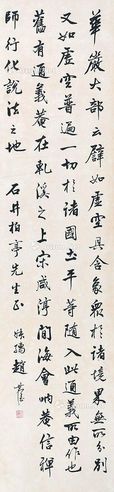 華嚴大部云譬如虛空具含衆象於諸境界無所分別
又如虛空普遍一切於諸國土平等隨入此通義所由作也
舊有通義菴在乾溪之上宋咸淳間海會吶菴信禪
師行化說法之地
石井柏亭先生正 趙